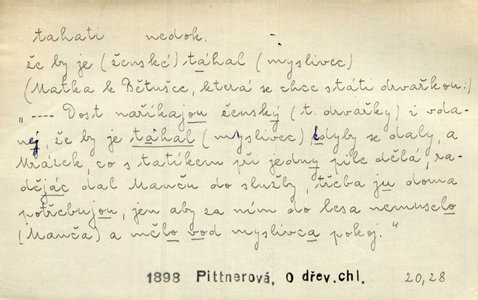 tahati nedok.
že by je (ženské) táhal (myslivec)
(Matka k Bětušce, která se chce státi dřvařkou:)
„---- Dost naříkajou ženský (t. drvařky) i vda-
nej, že by je táhal (myslivec) kdyby se daly, a
Mrázek, co s tatíkem při jedny pile dělá, ra-
dějác dal Manču do služby, třeba ju doma
potřebujou, jen aby za ním do lesa nemuselo
(Manča) a mělo vod myslivca pokoj."
1898 Pittnerová, O dřev.chl. 20,28